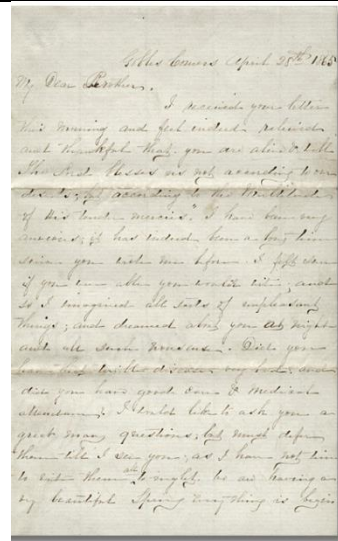 Gobles Corners April 25th 1865
My Dear Brother,
I received your letter
this morning and feel indeed relieved
and thankful that you are alive & well
The Lord blesses us not according to our
deserts, but according to the multitude
of His tender mercies." I have been very
anxious; it has indeed been a long time
since you wrote me before I felt sure
if you were able you would write, and
so I imagined all sorts of unpleasant
things; and dreamed about you at night
and all such nonsense. Did you
have that disease very bad, and
did you have good care & medical
attendance. I would like to ask you a
great many questions; but must defer
them till I see you; as I have not time
to write them all to night. We are having a
very beautiful Spring everything is